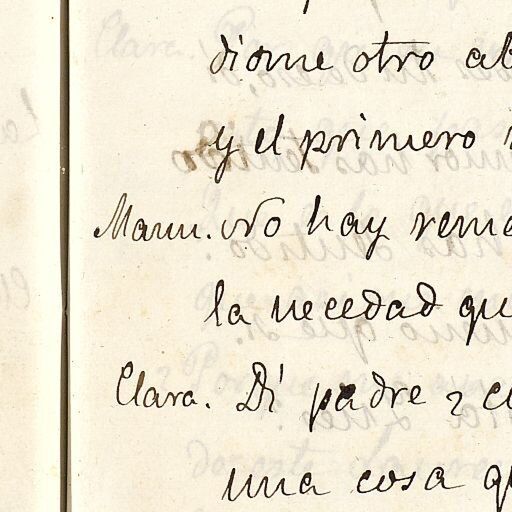 diome otro ab
y el primero
Manu. No hay reme
la necedad qu
Clara. Di padre ¿ c
una cosa q